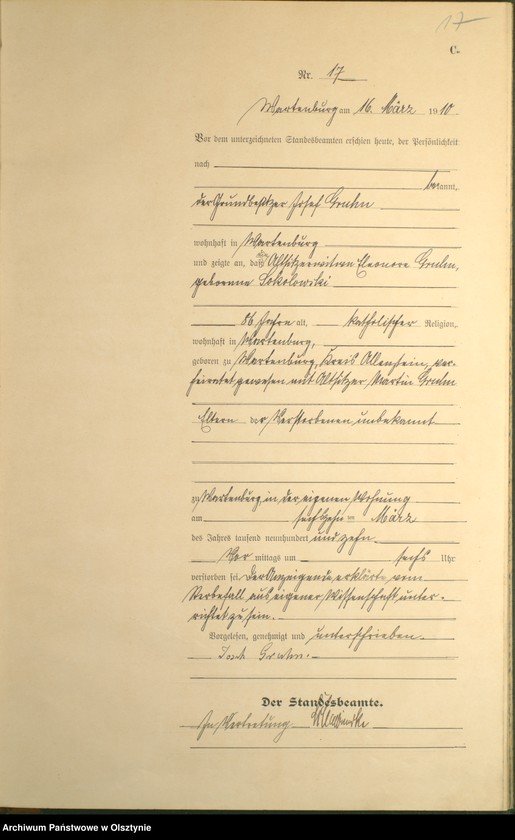 17
C.
Nr. 17
Wartenburg am 16. März 1910.
Vor dem unterzeichneten Standesbeamten erschien heute, der Persönlichkeit
nach
bekannt,
der Grundbesitzer Josef
wohnhaft in Wartenburg
und zeigte an, daß die Altsitzerwitwe Eleonore
geborene Sokolowski
86 Jahre alt, katholischer Religion,
wohnhaft in Wartenburg,
geboren zu Wartenburg, Kreis Allenstein, ver-
heiratet gewesen mit Altsitzer Martin
Eltern der Verstorbenen unbekannt
zu Wartenburg, in der eigenen Wohnung
am sechzehnten März
des Jahres tausend neunhundert und zehn
Vor mittags um sechs Uhr
verstorben sei. Der Anzeigende erklärte, vom
Sterbefall aus eigener Wissenschaft unter-
richtet zu sein.
Vorgelesen, genehmigt und unterschrieben.
Der Standesbeamte.
In Vertretung
Archiwum Państwowe w Olsztynie